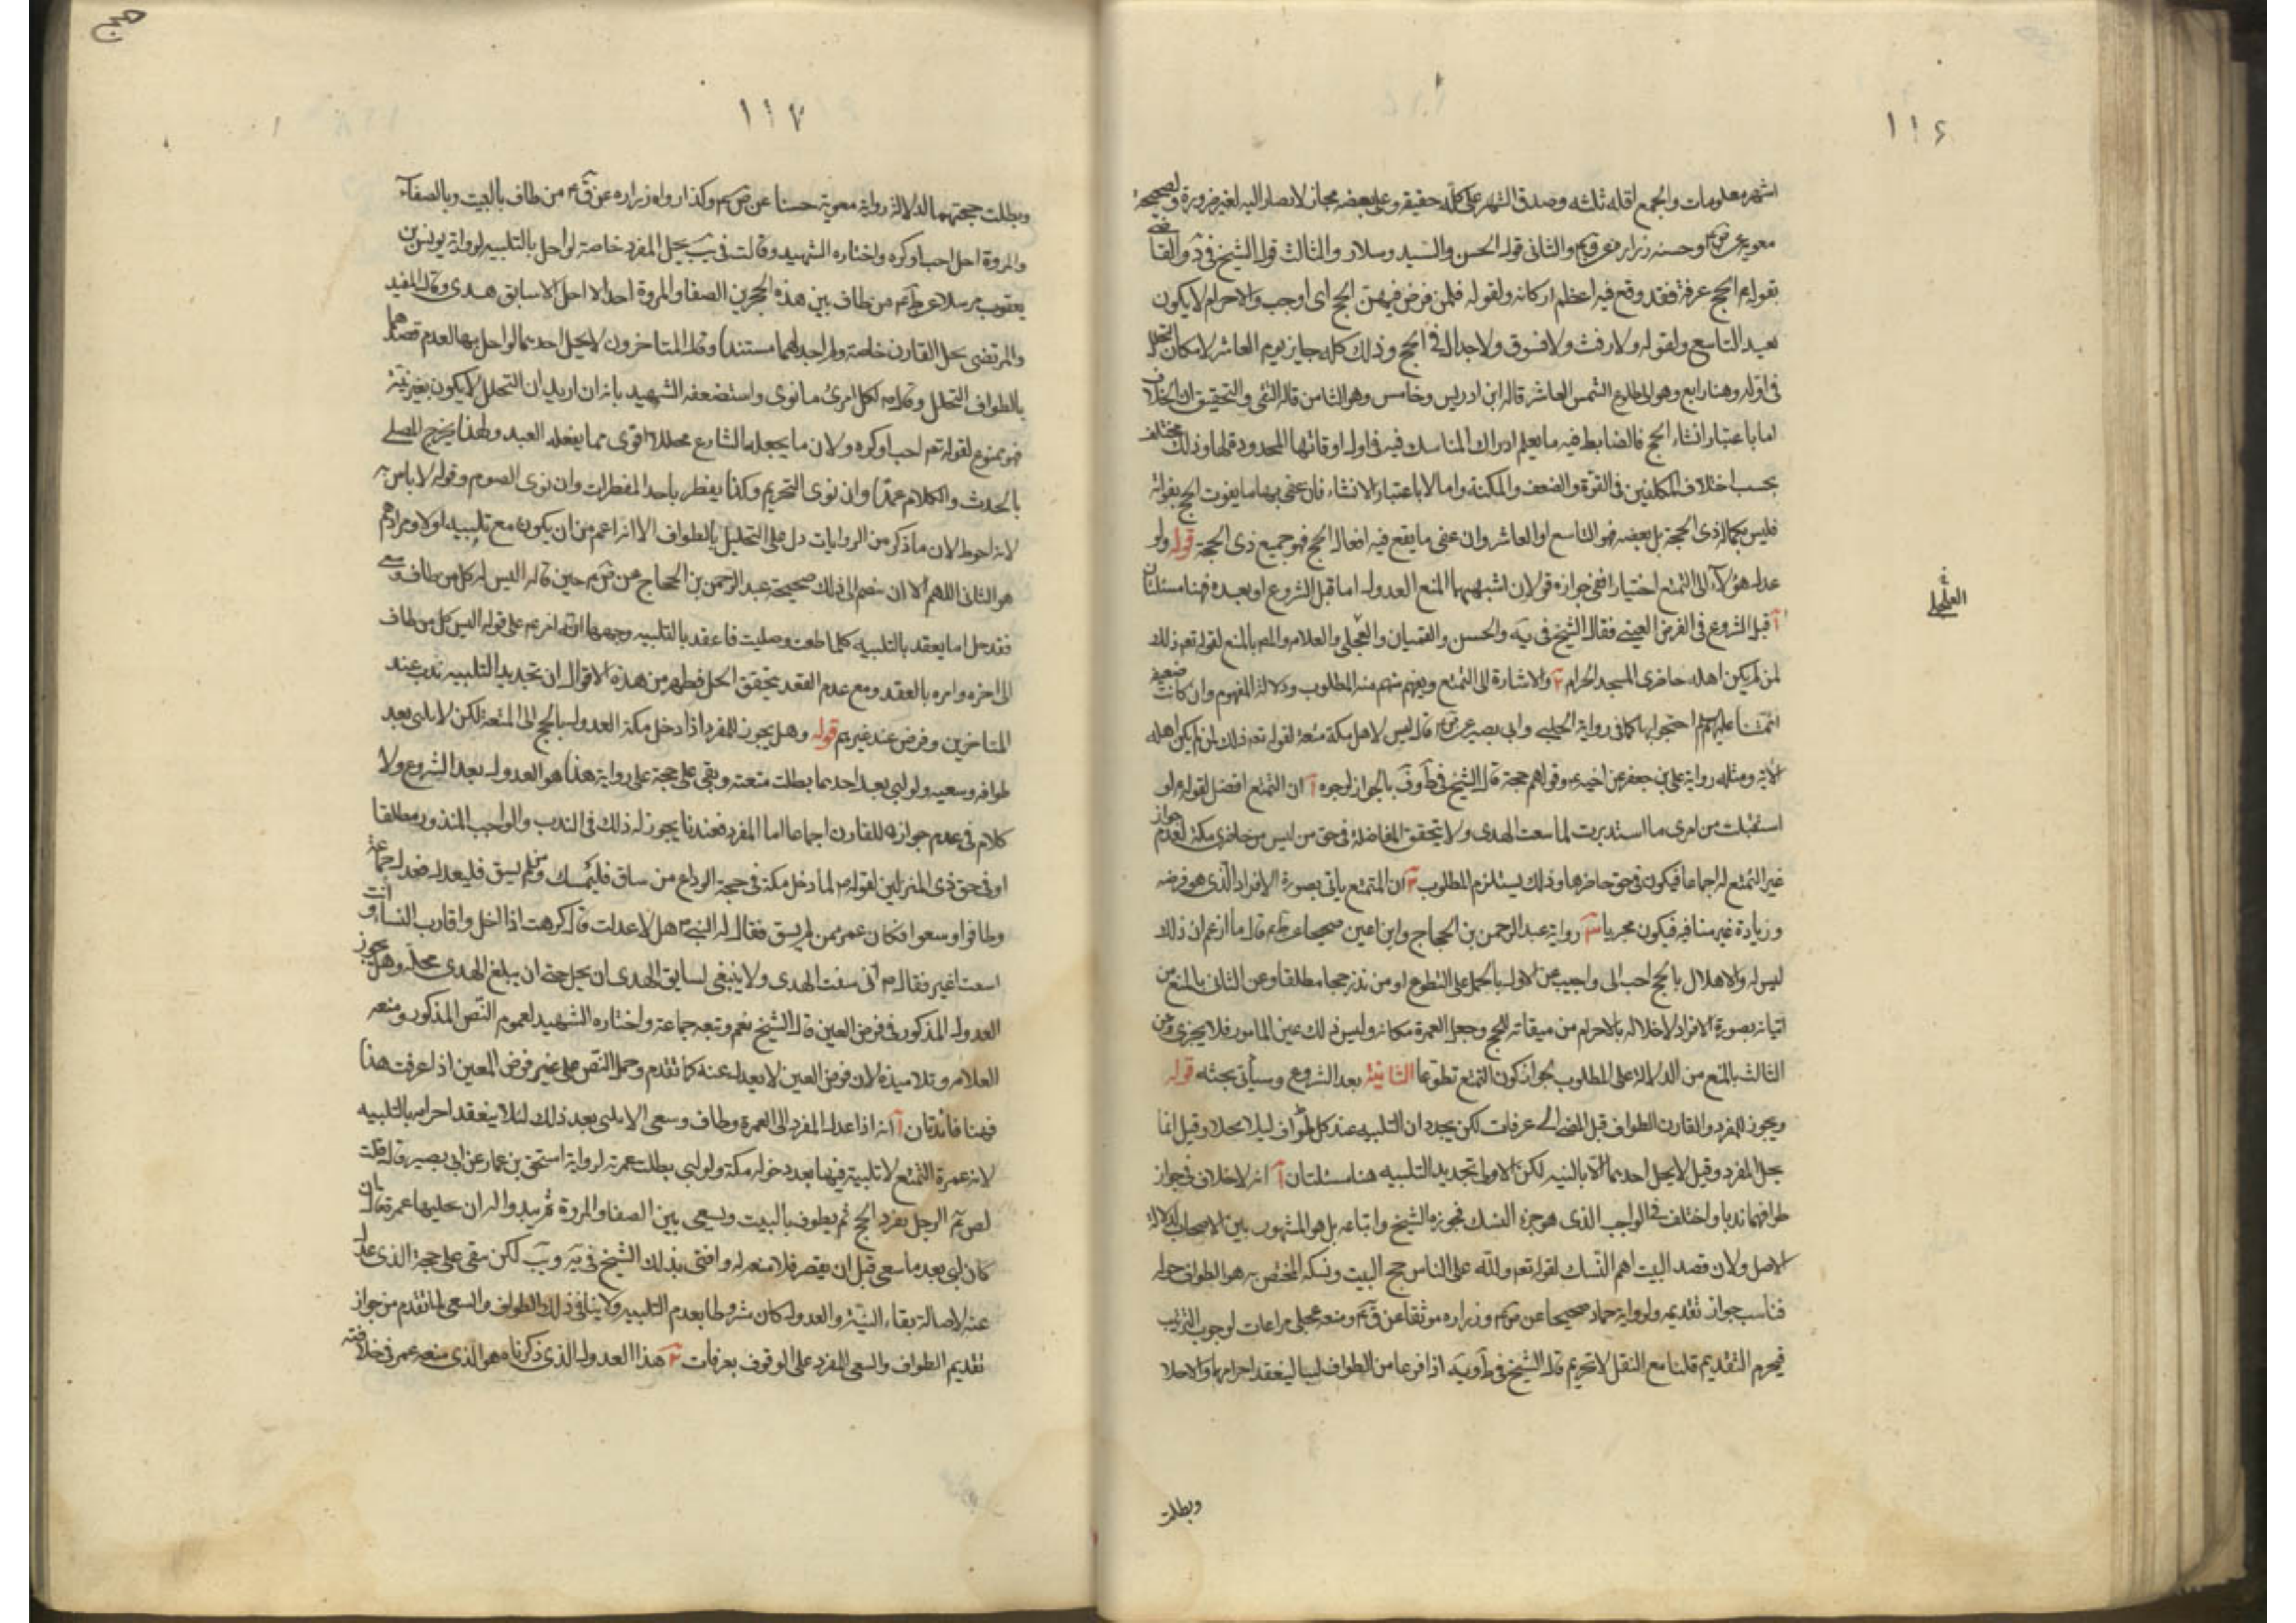 ١١٦
اشهر معلومات والجمع اقله ثلثه وصدق الشهر على كله حقيقة وعلى بعضه مجاز لا يصار اليه لغير ضرورة ولصحيحة
معوية عن ص م وحسنه زراره عن ق م والثانى قول الحسن والسيد وسلار والثالث قول الشيخ فى
بقوله م الحج عرفة فقد وقع فيه اعظم اركانه ولقوله فمن فرض فيهن الحج اى اوجب والاحرام لا يكون
بعيد التاسع ولقوله ولا رفث ولا فسوق ولا جدال فى الحج وذلك كله جايز يوم العاشر لامكان التحلل
فى اوله وهنا رابع وهو الى طلوع الشمس العاشر قاله ابن ادريس وخامس وهو الثامن قاله التقى والتحقيق ان الخلاف
اما باعتبار انشاء الحج فالضابط فيه ما يعلم ادراك المناسك فيه فى اول اوقاتها المحدودة لها وذلك مختلف
بحسب اختلاف المكلفين فى القوة والضعف والمكنة واما لا باعتبار الانشاء فان عنى بها ما يفوت الحج بفواته
فليس بكمال ذى الحجة بل بعضه هو التاسع او العاشر وان عنى ما يقع فيه افعال الحج فهو جميع ذى الحجة قوله ولو
عدل هؤلاء الى التمتع اختيارا ففى جوازه قولان اشبههما المنع العدول اما قبل الشروع او بعده فهنا مسئلتان
آ قبل الشروع فى الفرض العينى فقال الشيخ فى يه والحسن والفقيهان والعجلى والعلامه والمصه بالمنع لقوله تع ذلك
لمن لم يكن اهله حاضرى المسجد الحرام والاشارة الى التمتع ويفهم منه المطلوب ودلالة المفهوم وان كانت ضعيفة
ائمتنا عليهم السلام احتجوا بها كما فى رواية الحلبى وابى بصير عن ص م قال ليس لاهل مكة متعة لقوله تع ذلك لمن لم يكن اهله
الآية ومثله رواية على بن جعفر عن اخيه م وقولهم حجة قال الشيخ فى ط وف بالجواز لوجوه آ ان التمتع افضل لقوله م لو
استقبلت من امرى ما استدبرت لما سقت الهدى ولا يتحقق المفاضلة فى حق من ليس من حاضرى مكة لعدم جواز
غير التمتع له اجماعا فيكون فى حق حاضرها وذلك يستلزم المطلوب ان المتمتع ياتى بصورة الافراد الذى هو فرضه
وزيادة غير منافيه فيكون مجزيا رواية عبد الرحمن بن الحجاج وابن اعين صحيحا عن ظ م قال ما ازعم ان ذلك
ليس له والاهلال بالحج احب الى واجيب عن الاول بالحمل على التطوع او من نذر حجا مطلقا وعن الثانى بالمنع من
اتيانه بصورة الافراد لاخلاله بالاحرام من ميقاته للحج وجعل العمرة مكانه وليس ذلك عين المامور فلا يجزى وعن
الثالث بالمنع من الدلالة على المطلوب لجواز كون التمتع تطوعا الثانية بعد الشروع وسيأتى بحثه قوله
ويجوز للمفرد والقارن الطواف قبل المضى الى عرفات لكن يجددان التلبيه عند كل طواف ليلا يحلا وقيل انما
يحل المفرد وقيل لا يحل احدهما الا بالنيه لكن الاولى تجديد التلبيه هنا مسئلتان آ انه لا خلاف فى جواز
طوافهما ندبا واختلف فى الواجب الذى هو جزء النسك فجوزه الشيخ واتباعه بل هو المشهور بين الاصحاب لدلالة
الاصل ولان قصد البيت اهم النسك لقوله تع ولله على الناس حج البيت ونسكه المختص به هو الطواف حوله
فناسب جواز تقديمه ولرواية حماد صحيحا عن ص م وزراره موثقا عن ق م ومنعه عجلى مراعات لوجوب الترتيب
فيحرم التقديم قلنا مع النقل لا تحريم قال الشيخ فى ط ويه اذا فرغا من الطواف لبيا لينعقد احرامهما والا حلا
وبطلت
العجلى
١١٧
حج
وبطلت حجتهما لدلالة رواية معوية حسنا عن ص م وكذا رواه زراره عن ق م من طاف بالبيت وبالصفا
والمروة احل احب او كره واختاره الشهيد وقالت فى يب يحل المفرد خاصة لو احل بالتلبيه لرواية يونس بن
يعقوب مرسلا عن ظ م من طاف بين هذه الحجرين الصفا والمروة احد الا احل الا سابق هدى وقال المفيد
والمرتضى يحل القارن خاصة ولم اجد لهما مستندا وقال المتاخرون لا يحل احدهما لو احل بها لعدم قصدهما
بالطواف التحلل وقال م لكل امرئ ما نوى واستضعفه الشهيد بانه ان اريد ان التحلل لا يكون بغير نية
فهو ممنوع لقوله تع احب او كره ولان ما يجعله الشارع محللا اقوى مما يفعله العبد ولهذا يخرج المصلى
بالحدث والكلام عمدا وان نوى التحريم وكذا يفطر باحد المفطرات وان نوى الصوم وقوله لا باس به
لانه احوط لان ما ذكر من الروايات دل على التحليل بالطواف الا انه اعم من ان يكون مع تلبيه اولا ومرادهم
هو الثانى اللهم الا ان نضم الى ذلك صحيحة عبد الرحمن بن الحجاج عن ص م حين قال اليس له كل من طاف وسعى
فقد حل اما يعقد بالتلبيه كلما طفت وصليت فاعقد بالتلبيه وجهها انه م على قوله اليس كل من طاف
الى اخره وامره بالعقد ومع عدم العقد يتحقق الحل فظهر من هذه الاقوال ان تجديد التلبيه ندب عند
المتاخرين وفرض عند غيرهم قوله وهل يجوز للمفرد اذا دخل مكة العدول بالحج الى المتعة لكن لا يلبى بعد
طوافه وسعيه ولو لبى بعد احدهما بطلت متعته وبقى على حجة على رواية هذا هو العدول بعد الشروع ولا
كلام فى عدم جوازه للقارن اجماعا اما المفرد فعندنا يجوز له ذلك فى الندب والواجب المنذور مطلقا
او فى حق ذى المنزلين لقوله م لما دخل مكة فى حجة الوداع من ساق فليمسك ومن لم يسق فليعدل فعدل جماعة
وطافوا وسعوا فكان عمر ممن لم يسق فقال له النبى م هل لا عدلت قال كرهت اذا احل واقارب النساء وانت
اشعث اغبر فقال م انى سقت الهدى ولا ينبغى لسايق الهدى ان يحل حتى ان يبلغ الهدى محله وهل يجوز
العدول المذكور فى فرض العين قال الشيخ نعم وتبعه جماعة واختاره الشهيد لعموم النص المذكور ومنعه
العلامه وتلاميذه لان فرض العين لا يعدل عنه كما تقدم وحمل النص على غير فرض المعين اذا عرفت هذا
فهنا فائدتان آ انه اذا عدل المفرد الى العمرة وطاف وسعى الا يلبى بعد ذلك لئلا ينعقد احرامه بالتلبيه
لانه عمرة التمتع لا تلبية فيها بعد دخول مكة ولو لبى بطلت عمرته لرواية اسحق بن عمار عن ابى بصير قال قلت
لص م الرجل يفرد الحج ثم يطوف بالبيت ويسعى بين الصفا والمروة ثم يبدو له ان يجعلها عمرة قال ان
كان لبى بعد ما سعى قبل ان يقصر فلا متعه له وافتى بذلك الشيخ فى يه ويب لكن مقى على حجة الذى عدل
عنه لاصالة بقاء النية والعدول كان مشروطا بعدم التلبيه ولا ينافى ذلك الطواف والسعى لما تقدم من جواز
تقديم الطواف والسعى للمفرد على الوقوف بعرفات هذا العدول الذى ذكرناه هو الذى منعه عمر فى خلافته